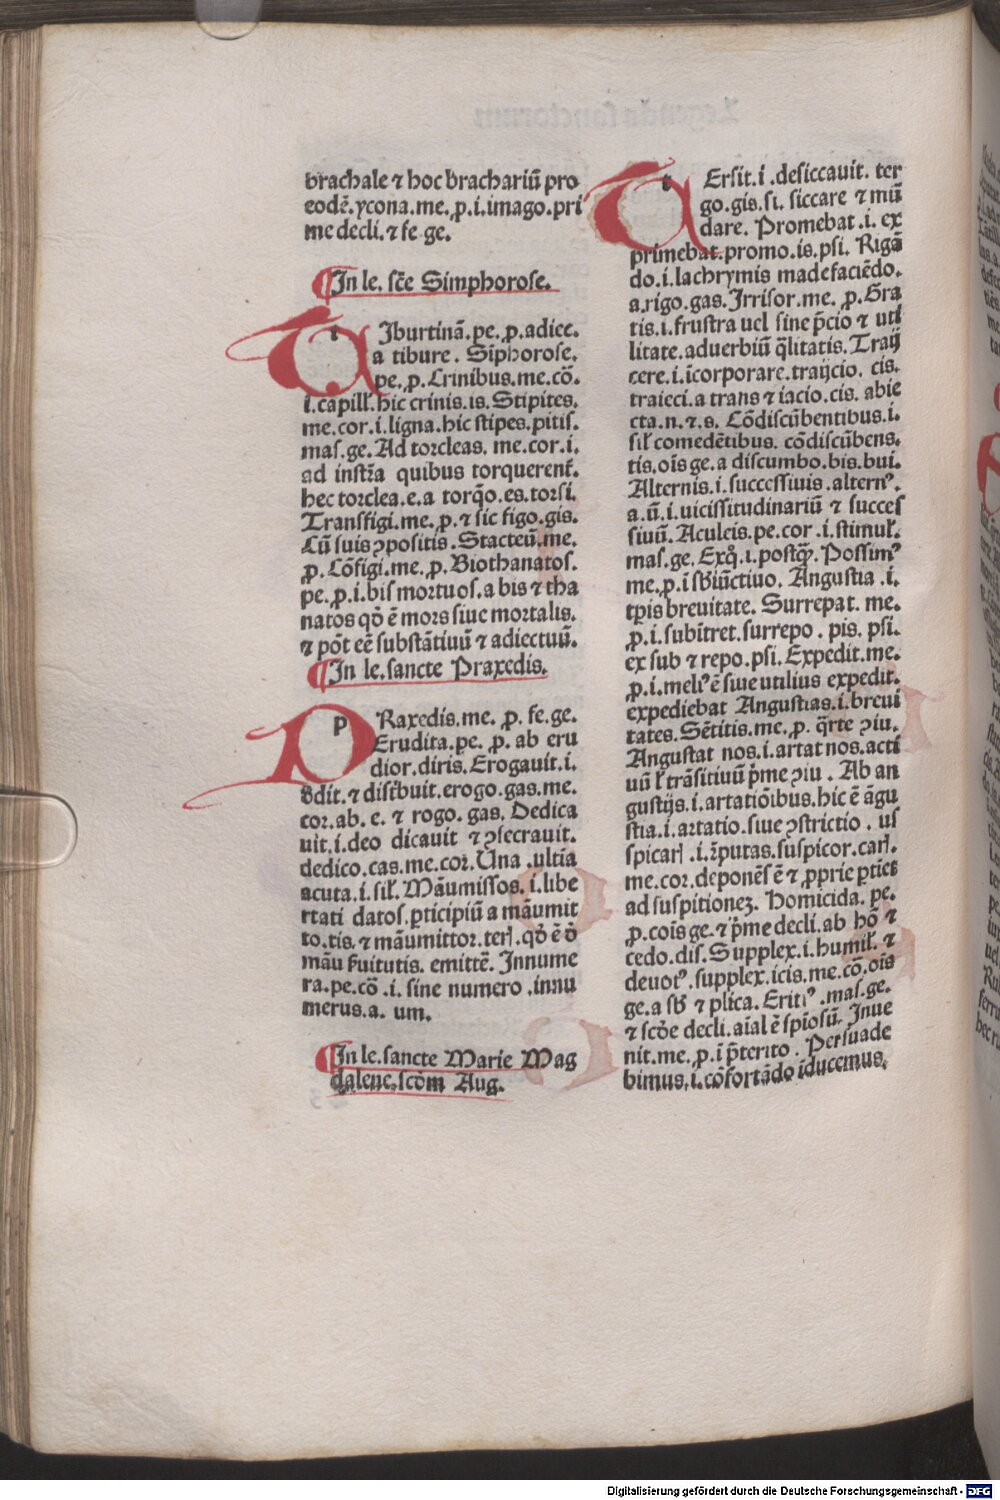 brachale ⁊ hoc brachariū pro
eodē.ycona.me.ꝓ.i.imago.pri
me decli.⁊ fe ge.
¶In le. scē Simphorose.
tIburtinā.pe.ꝓ.adiec.
a tibure. Siphorose.
pe.ꝓ.Crinibus.me.cō.
i.capill'.hic crinis.is.Stipites.
me.cor.i.ligna.hic stipes.pitis.
mas.ge.Ad torcleas. me.cor.i.
ad instr̄a quibus torquerent̄.
hec torclea.e.a torq̄o.es.torsi.
Transfigi.me.ꝓ.⁊ sic figo.gis.
Cū suis ꝯpositis.Stacteū.me.
ꝓ.Cōfigi.me.ꝓ.Biothanatos.
pe.ꝓ.i.bis mortuos.a bis ⁊ tha
natos qō ē mors siue mortalis.
⁊ pōt eē substātiuū ⁊ adiectuū.
¶In le.sancte Praxedis.
pRaxedis.me. ꝓ. fe.ge.
Erudita.pe. ꝓ. ab eru
dior.diris.Erogauit.i.
ddit.⁊ distbuit.erogo.gas.me.
cor.ab. e. ⁊ rogo. gas. Dedica
uit.i.deo dicauit ⁊ ꝯsecrauit.
dedico.cas.me.cor.Una .ultia
acuta.i.sil'.Māumissos.i.libe
rtati datos.ꝑticipiū a māumit
to.tis.⁊ māumittor.terꝭ.qō ē ō
māu ẜuitutis. emittē. Innume
ra.pe.cō .i. sine numero .innu
merus.a. um.
¶In le.sancte Marie Mag
dalene.scōm Aug.
tErsit.i.desiccauit. ter
go.gis.si. siccare ⁊ mū
dare. Promebat.i. ex
primebat.promo.is.psi. Rigā
do.i.lachrymis madefaciēdo.
a.rigo.gas.Irrisor.me. ꝓ.Gra
tis.i.frustra uel sine p̄cio ⁊ uti
litate.aduerbiū q̄litatis.Traij
cere.i.īcorporare.traijcio. cis.
traieci.a trans ⁊ iacio.cis. abie
cta.n.⁊.s. Cōdiscūbentibus.i.
sil' comedētibus. cōdiscūbens.
tis.oīs ge.a discumbo.bis.bui.
Alternis.i.successiuis.altern⁹.
a.ū.i.uicissitudinariū ⁊ succes
siuū. Aculeis.pe.cor .i.stimul'.
mas.ge. Exq̊.i.postq̄ꝫ. Possim⁹
me.ꝓ.ī sb̄iūctiuo. Angustia .i.
tp̄is breuitate. Surrepat. me.
ꝓ.i.subītret.surrepo. pis. psi.
ex sub ⁊ repo.psi. Expedit.me.
ꝓ.i.meli⁹ ē siue utilius expedit.
expediebat Angustias.i.breui
tates. Sētitis.me.ꝓ. q̄rte ꝯiu.
Angustat nos.i.artat nos.acti
uū l' trāsitiuū p̄me ꝯiu . Ab an
gustijs.i.artatiōibus.hic ē āgu
stia.i.artatio.siue ꝯstrictio . us
spicarꝭ .i.īputas.suspicor.carꝭ.
me.cor.deponēs ē ⁊ ꝓprie ꝑtīet
ad suspitionez. Homicida. pe.
ꝓ.cois ge.⁊ p̄me decli.ab hō ⁊
cedo.dis.Supplex.i.humil'. ⁊
deuot⁹.supplex.icis.me.cō.oīs
ge.a sb̄ ⁊ plica. .mas.ge.
⁊ scd̄e decli.aīal ē spīosū. Inue
nit.me.ꝓ.ī p̄terito. Persuade
bimus.i.cōfortādo īducemus.
Digitalisierung gefördert durch die Deutsche Forschungsgemeinschaft - DFG